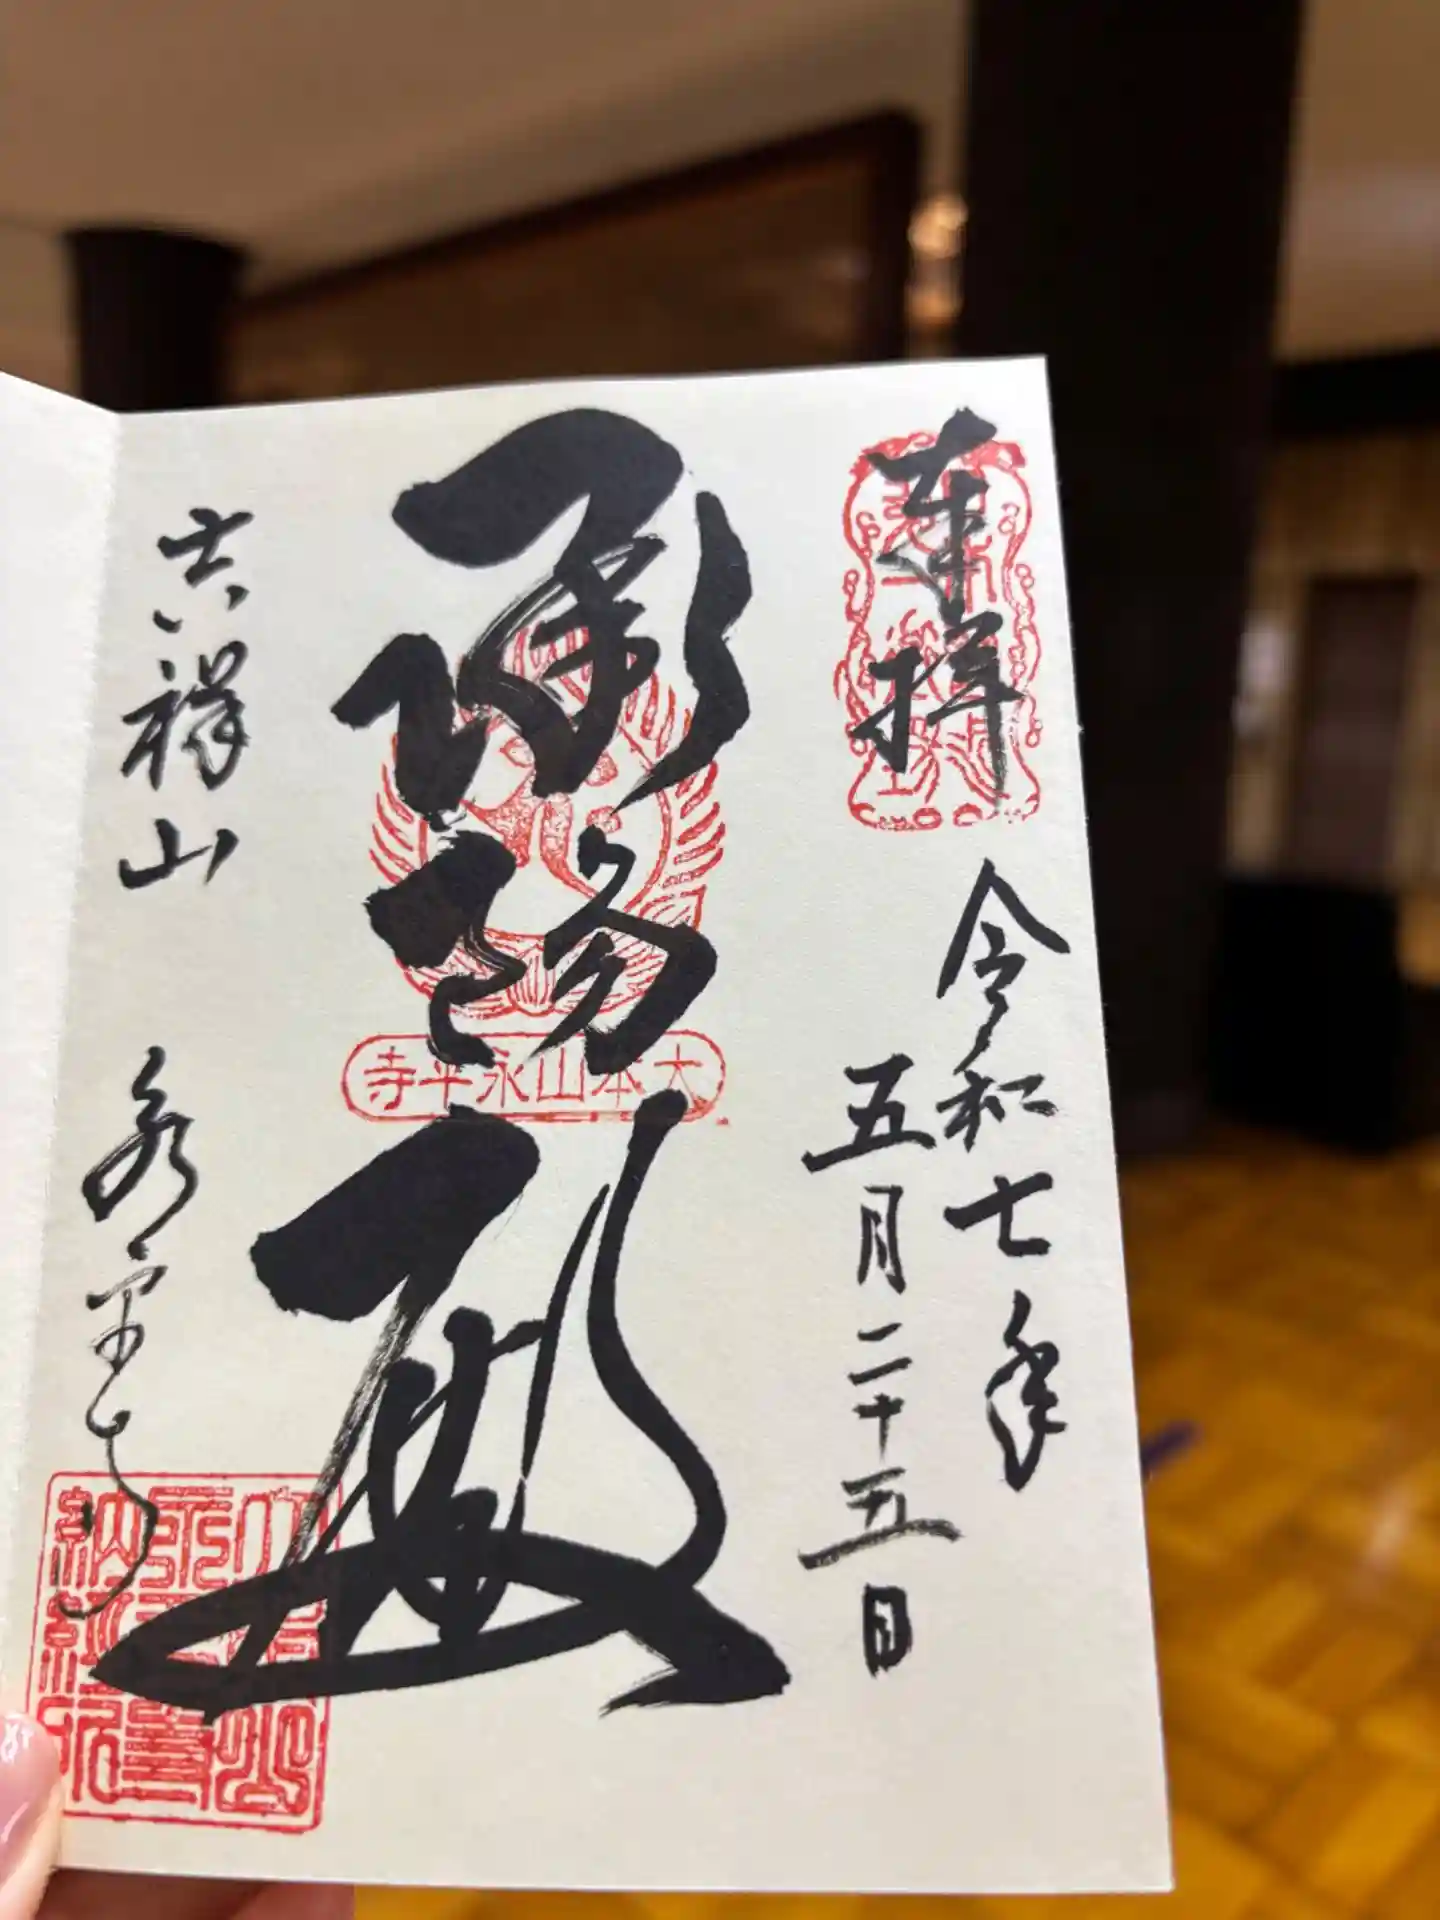 奉拝
令和七年
五月二十五日
承陽殿
大本山永平寺
吉祥山
永平寺